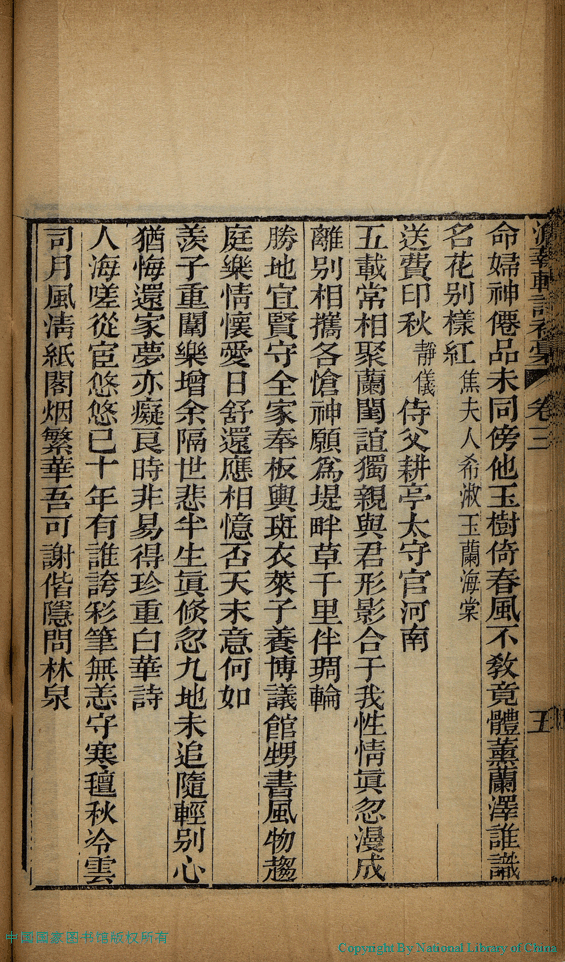 卷三
五
命婦神僊品未同傍他玉樹倚春風不教竟體薰蘭澤誰識
名花别樣紅焦夫人希淑玉蘭海棠
送費印秋靜儀侍父耕亭太守官河南
五載常相聚蘭閨誼獨親與君形影合于我性情眞忽漫成
離别相攜各愴神願爲堤畔草千里伴琱輪
勝地宜賢守全家奉板輿斑衣萊子養博議館甥書風物趨
庭樂情懷愛日舒還應相憶否天末意何如
羡子重闈樂增余隔世悲半生眞倏忽九地未追隨輕别心
猶悔還家夢亦癡良時非易得珍重白華詩
人海嗟從宦悠悠已十年有誰誇彩筆無恙守寒氊秋冷雲
司月風淸紙閣烟繁華吾可謝偕隱問林泉
中國國家图书馆版权所有
Copyright By National Library of China